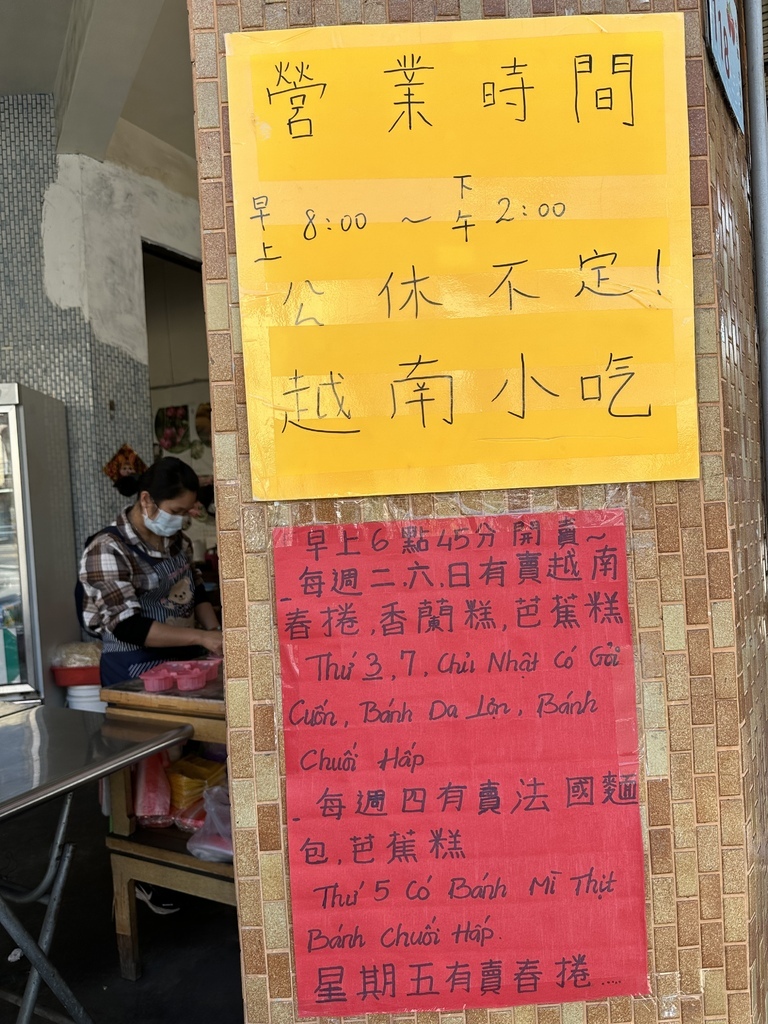 營業時間
早上 8:00 ~ 下午 2:00
公休不定!
越南小吃
早上6點45分開賣~
- 每週二.六.日有賣越南
春捲,香蘭糕,芭蕉糕
Thứ 3,7, Chủ Nhật Có Gỏi
Cuốn, Bánh Da Lợn, Bánh
Chuối Hấp
- 每週四有賣法國麵
包,芭蕉糕
Thứ 5 Có Bánh Mì Thịt
Bánh Chuối Hấp.
星期五有賣春捲.....